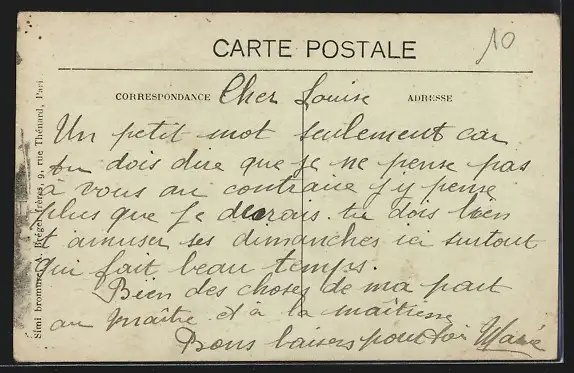 10
CARTE POSTALE
CORRESPONDANCE
ADRESSE
Cher Louise
Un petit mot seulement car
tu dois dire que je ne pense pas
à vous au contraire j'y pense
plus que je devrais. tu dois bien
t'amuser ses dimanches ici surtout
qui fait beau temps.
Bien des choses de ma part
au maître et à la maîtresse
Bons baisers pour toi Marie
Simi bromure, A. Bréger frères, 9, rue Thénard, Paris.